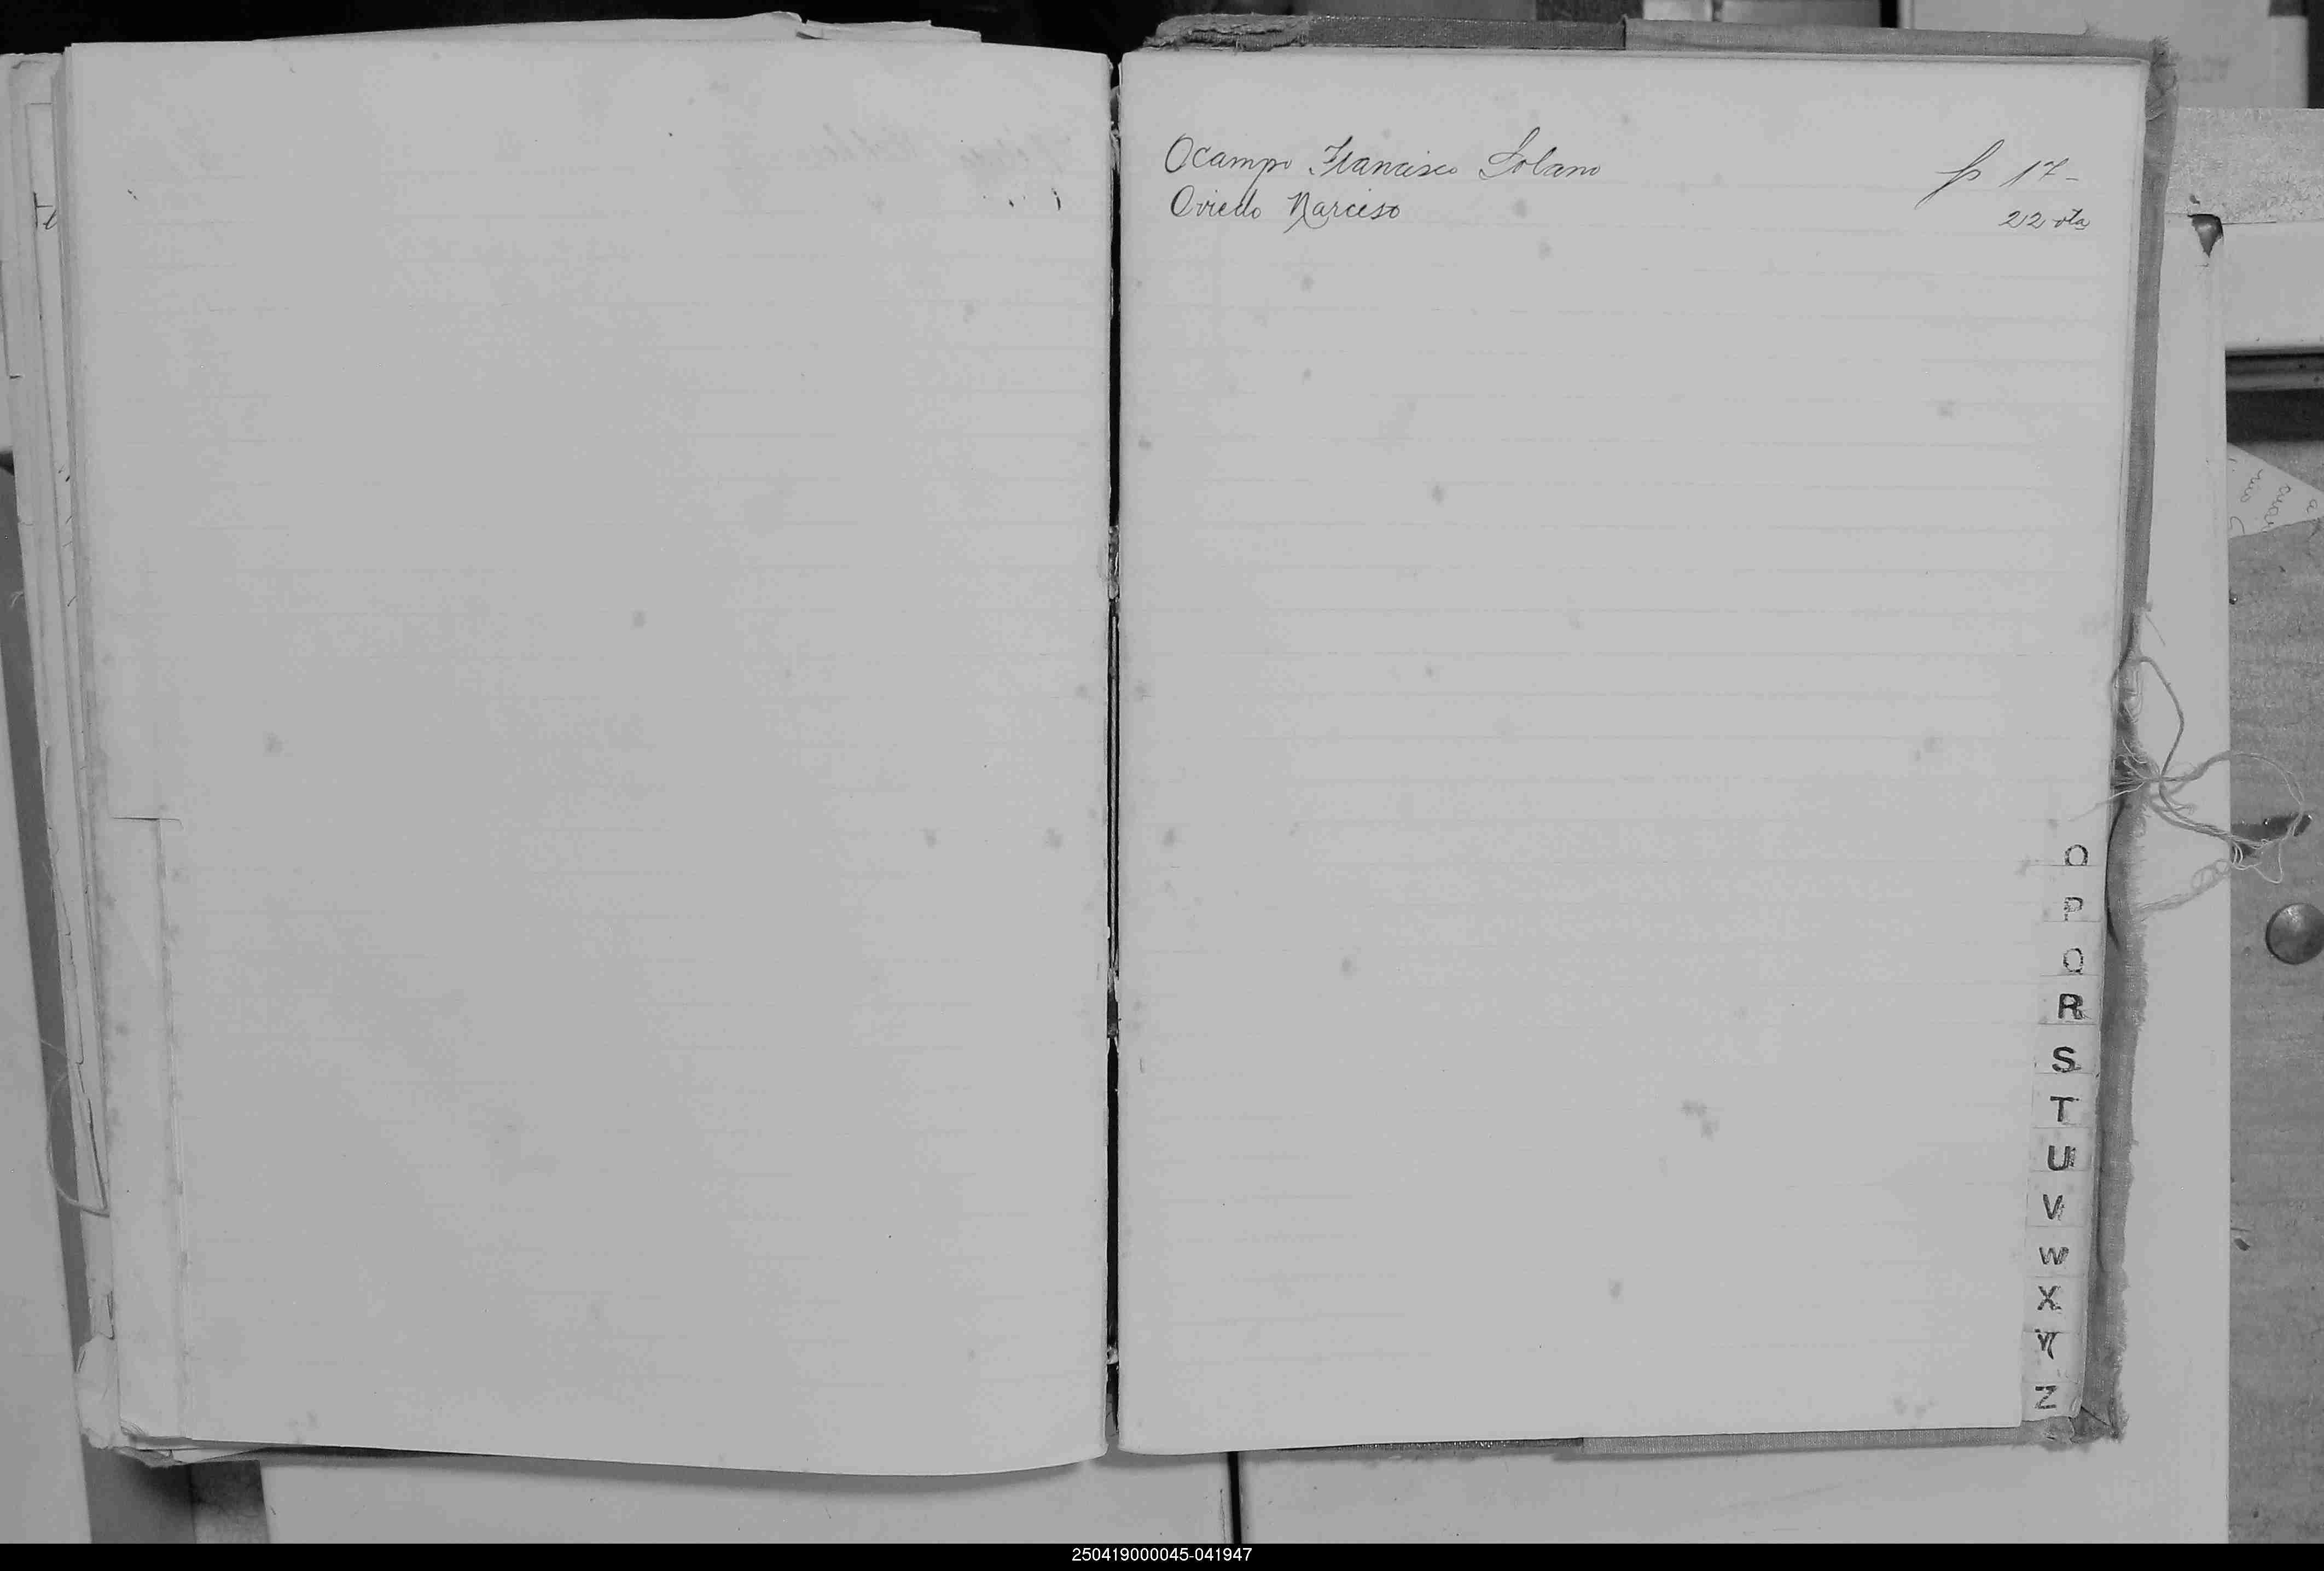 Ocampo Francisco Solano f 17-
Oviedo Narciso 22 vta
O
P
Q
R
S
T
U
V
W
X
Y
Z
250419000045-041947